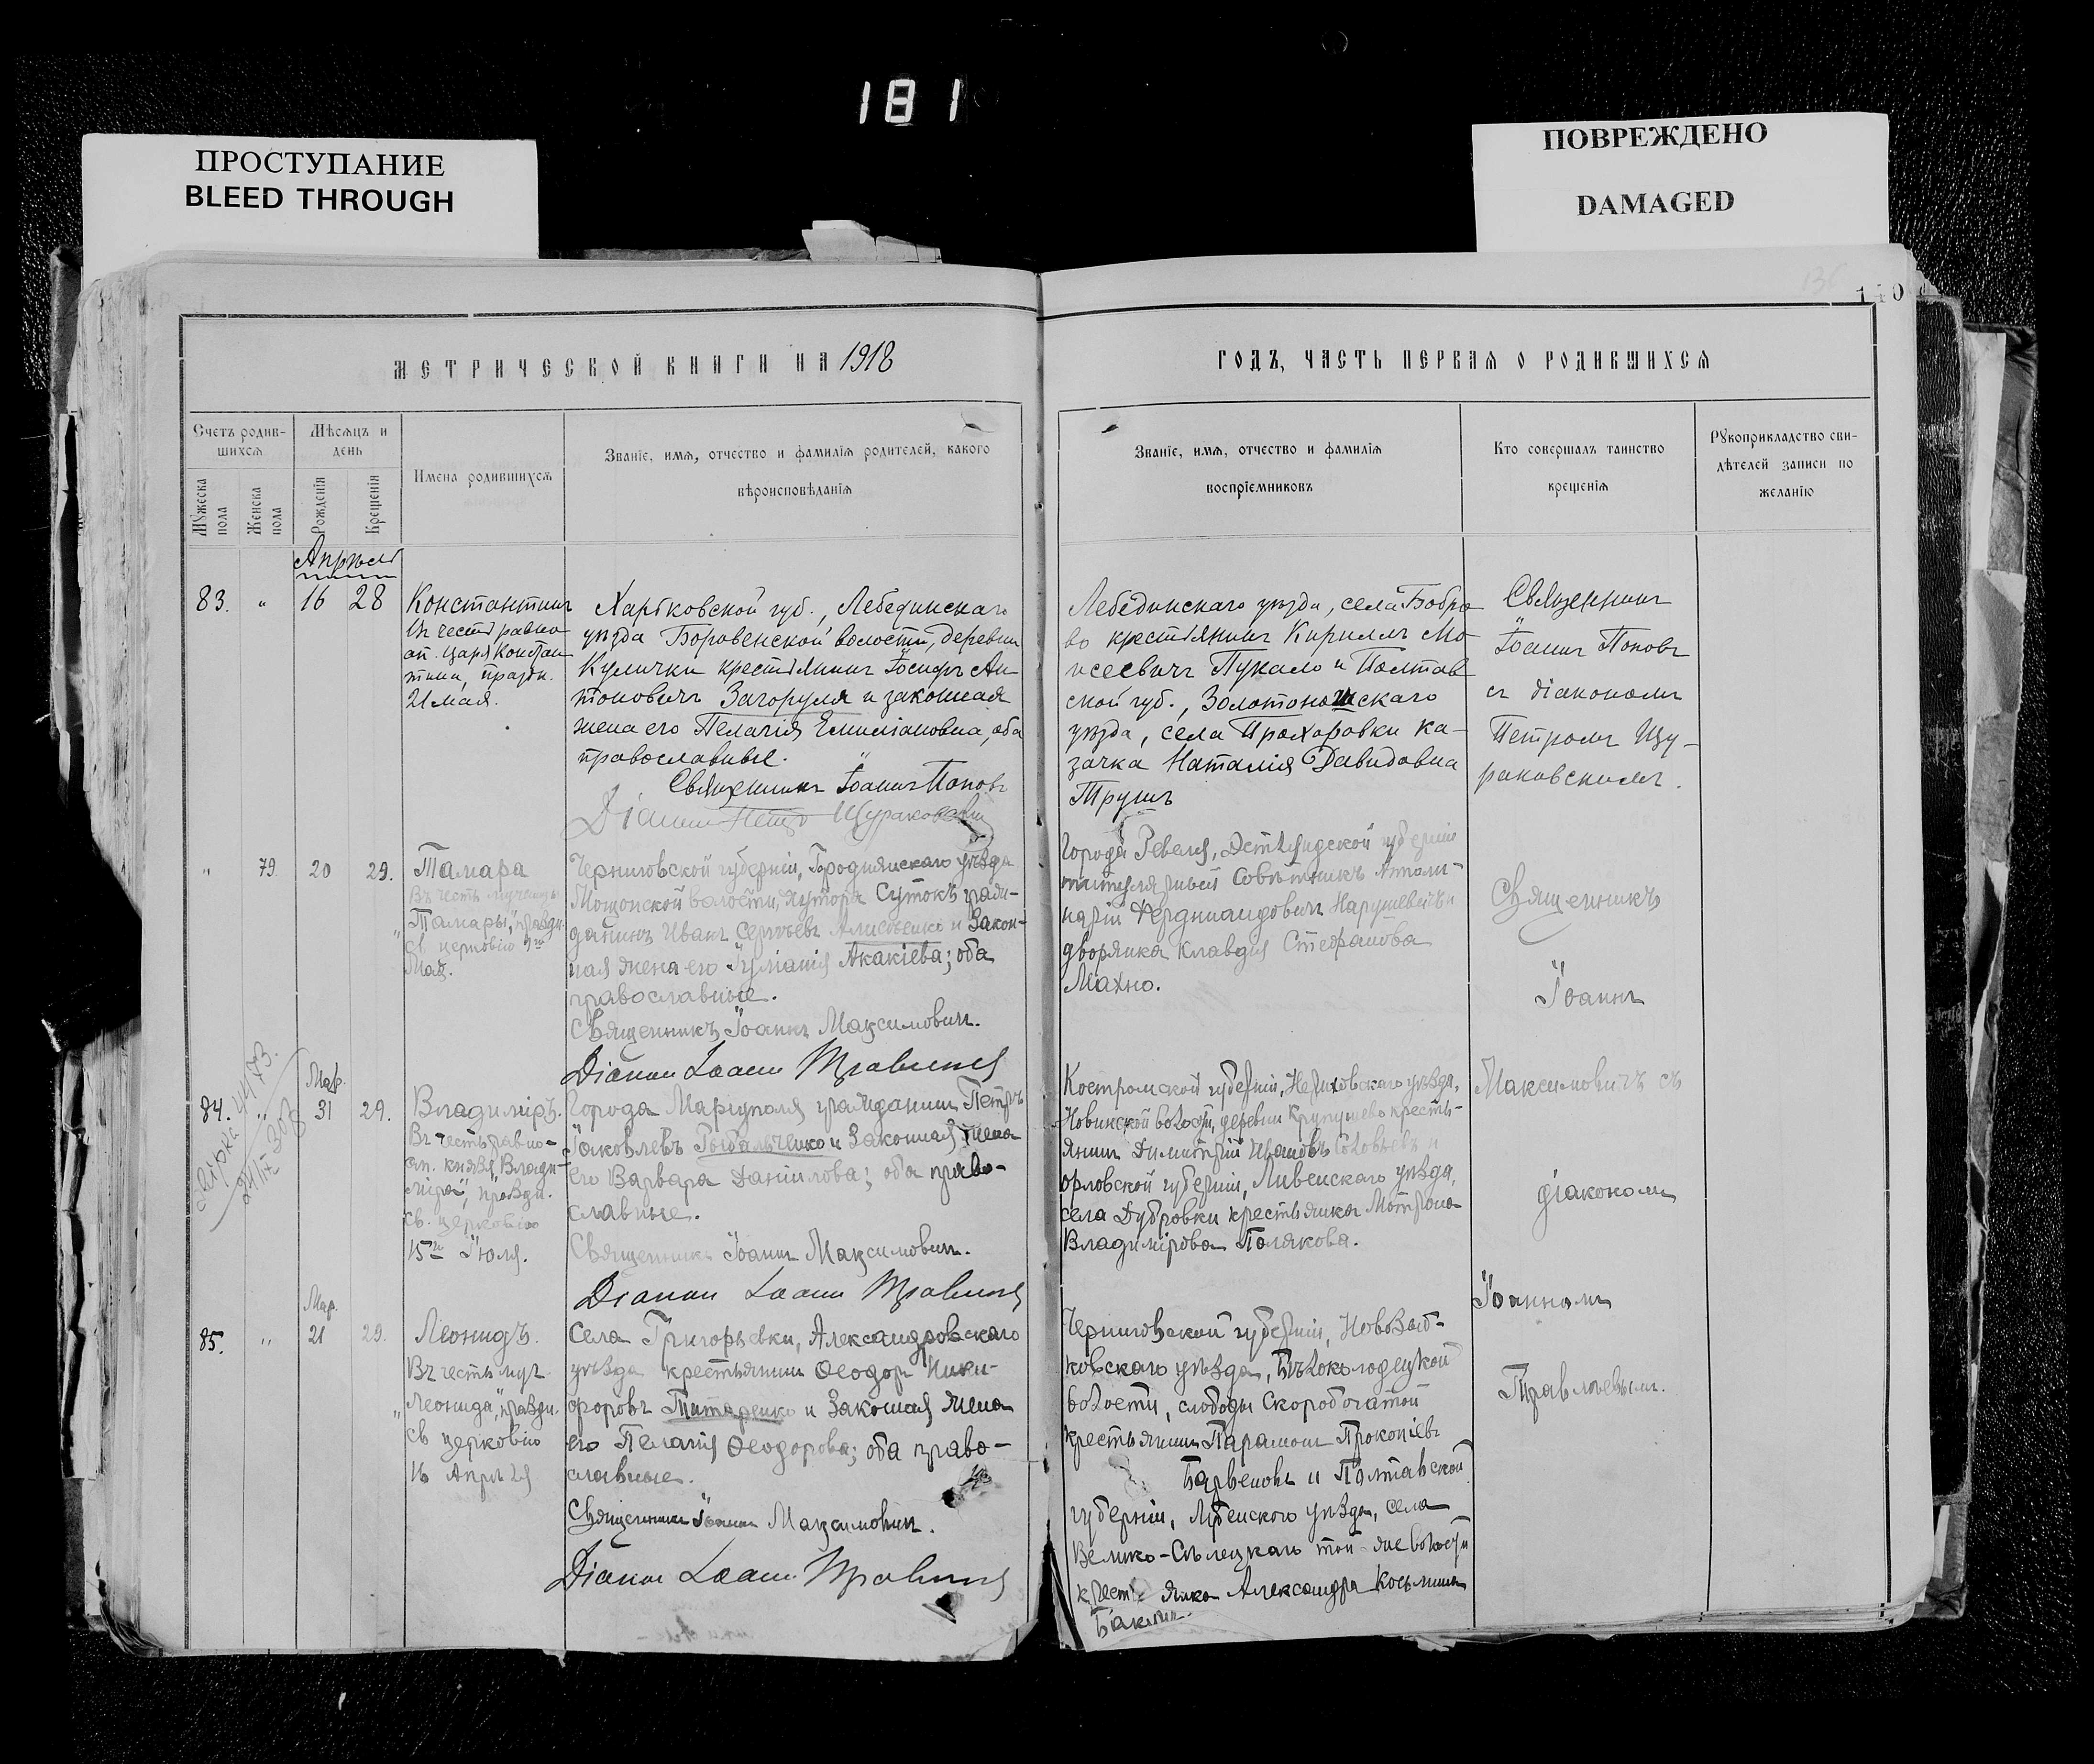 181
ПРОСТУПАНИЕ
BLEED THROUGH
ПОВРЕЖДЕНО
DAMAGED
МЕТРИЧЕСКОЙ КНИГИ НА 1918
ГОДЪ, ЧАСТЬ ПЕРВАЯ О РОДИВШИХСЯ
Счетъ родив-
шихся
Мѣсяцъ и
день
Мужеска
пола
Женска
пола
Рожденія
Крещенія
Имена родившихся
Званіе, имя, отчество и фамилія родителей, какого
вѣроисповѣданія
Званіе, имя, отчество и фамилія
воспріемниковъ
Кто совершалъ таинство
крещенія
Рукоприкладство сви-
дѣтелей записи по
желанію
Апрѣль
83. " 16 28
Константинъ
въ честь равно-
ап. царя Констан-
тина, праздн.
21 мая.
Харьковской губ., Лебединскаго
уѣзда Боровенской волости, деревни
Кулички крестьянинъ Іосифъ Ан-
тоновичъ Загоруля и законная
жена его Пелагія Емиліановна, оба
православные.
Священникъ Іоаннъ Поповъ
Діаконъ Петръ Щураковскій
Лебединскаго уѣзда, села Бобро-
во крестьянинъ Кириллъ Мо-
исеевичъ Пукало и Полтав-
ской губ., Золотоношскаго
уѣзда, села Прохоровки ка-
зачка Наталія Давидовна
Трушъ
Священникъ
Іоаннъ Поповъ
съ діакономъ
Петромъ Щу-
раковскимъ.
" 79. 20 29.
Тамара
Въ честь мученицы
"Тамары", праздн.
св. церковію
Мая.
Черниговской губерніи, Городнянскаго уѣзда
волости, хутора Сутокъ граж-
данинъ Иванъ Сергѣевъ и Закон-
ная жена его Іуліанія Акакіева; оба
православные.
Священникъ Іоаннъ Максимовичъ.
Діаконъ Іоаннъ Травлѣевъ
Города Ревеля, Эстляндской губерніи
Совѣтникъ Аполи-
нарій Фердинандовичъ Нарушевичъ и
дворянка Клавдія Стефанова
Махно.
Священникъ
Іоаннъ
Максимовичъ съ
діакономъ
Іоанномъ
Травлѣевымъ.
Мар.
84. " 31 29.
Владиміръ.
Въ честь равно-
ап. князя "Влади-
міра", праздн.
св. церковію
15го Іюля.
Города Маріуполя гражданинъ Петръ
Іаковлевъ Рыбальченко и Законная жена
его Варвара Даніилова; оба право-
славные.
Священникъ Іоаннъ Максимовичъ.
Діаконъ Іоаннъ Травлѣевъ
Костромской губерніи, Нерехтовскаго уѣзда,
Новинской волости, деревни Крутушево кресть-
янинъ Димитрій Ивановъ Соловьевъ и
орловской губерніи, Ливенскаго уѣзда,
села Дубровки крестьянка Матрона
Владимірова Полякова.
Мар.
85. " 21 29.
Леонидъ.
Въ честь муч.
"Леонида", праздн.
св церковію
16 Апрѣля
Села Григорьевки, Александровскаго
уѣзда крестьянинъ Ѳеодоръ Ники-
форовъ Титаренко и Законная жена
его Пелагія Ѳеодорова; оба право-
славные.
Священникъ Іоаннъ Максимовичъ.
Діаконъ Іоаннъ Травлѣевъ
Черниговской губерніи, Новозыб-
ковскаго уѣзда, Бѣлоколодецкой
волости, слободы Скоробогатой
крестьянинъ Парамонъ Прокопіевъ
и Полтавской
губерніи, Лубенскаго уѣзда, села
Велико-Селецкаго той-же волости
крестьянка Александра Косьмина